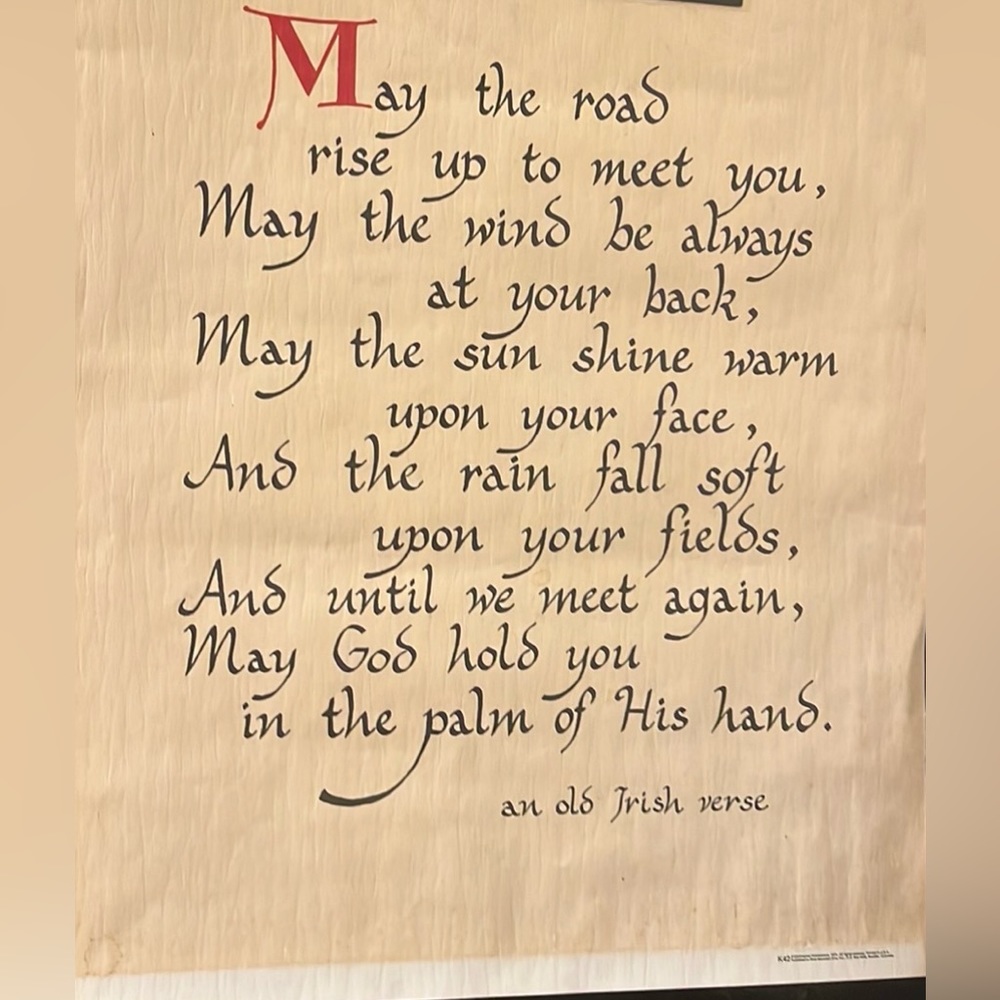 May the road
rise up to meet you,
May the wind be always
at your back,
May the sun shine warm
upon your face,
And the rain fall soft
upon your fields,
And until we meet again,
May God hold you
in the palm of His hand.
an old Irish verse